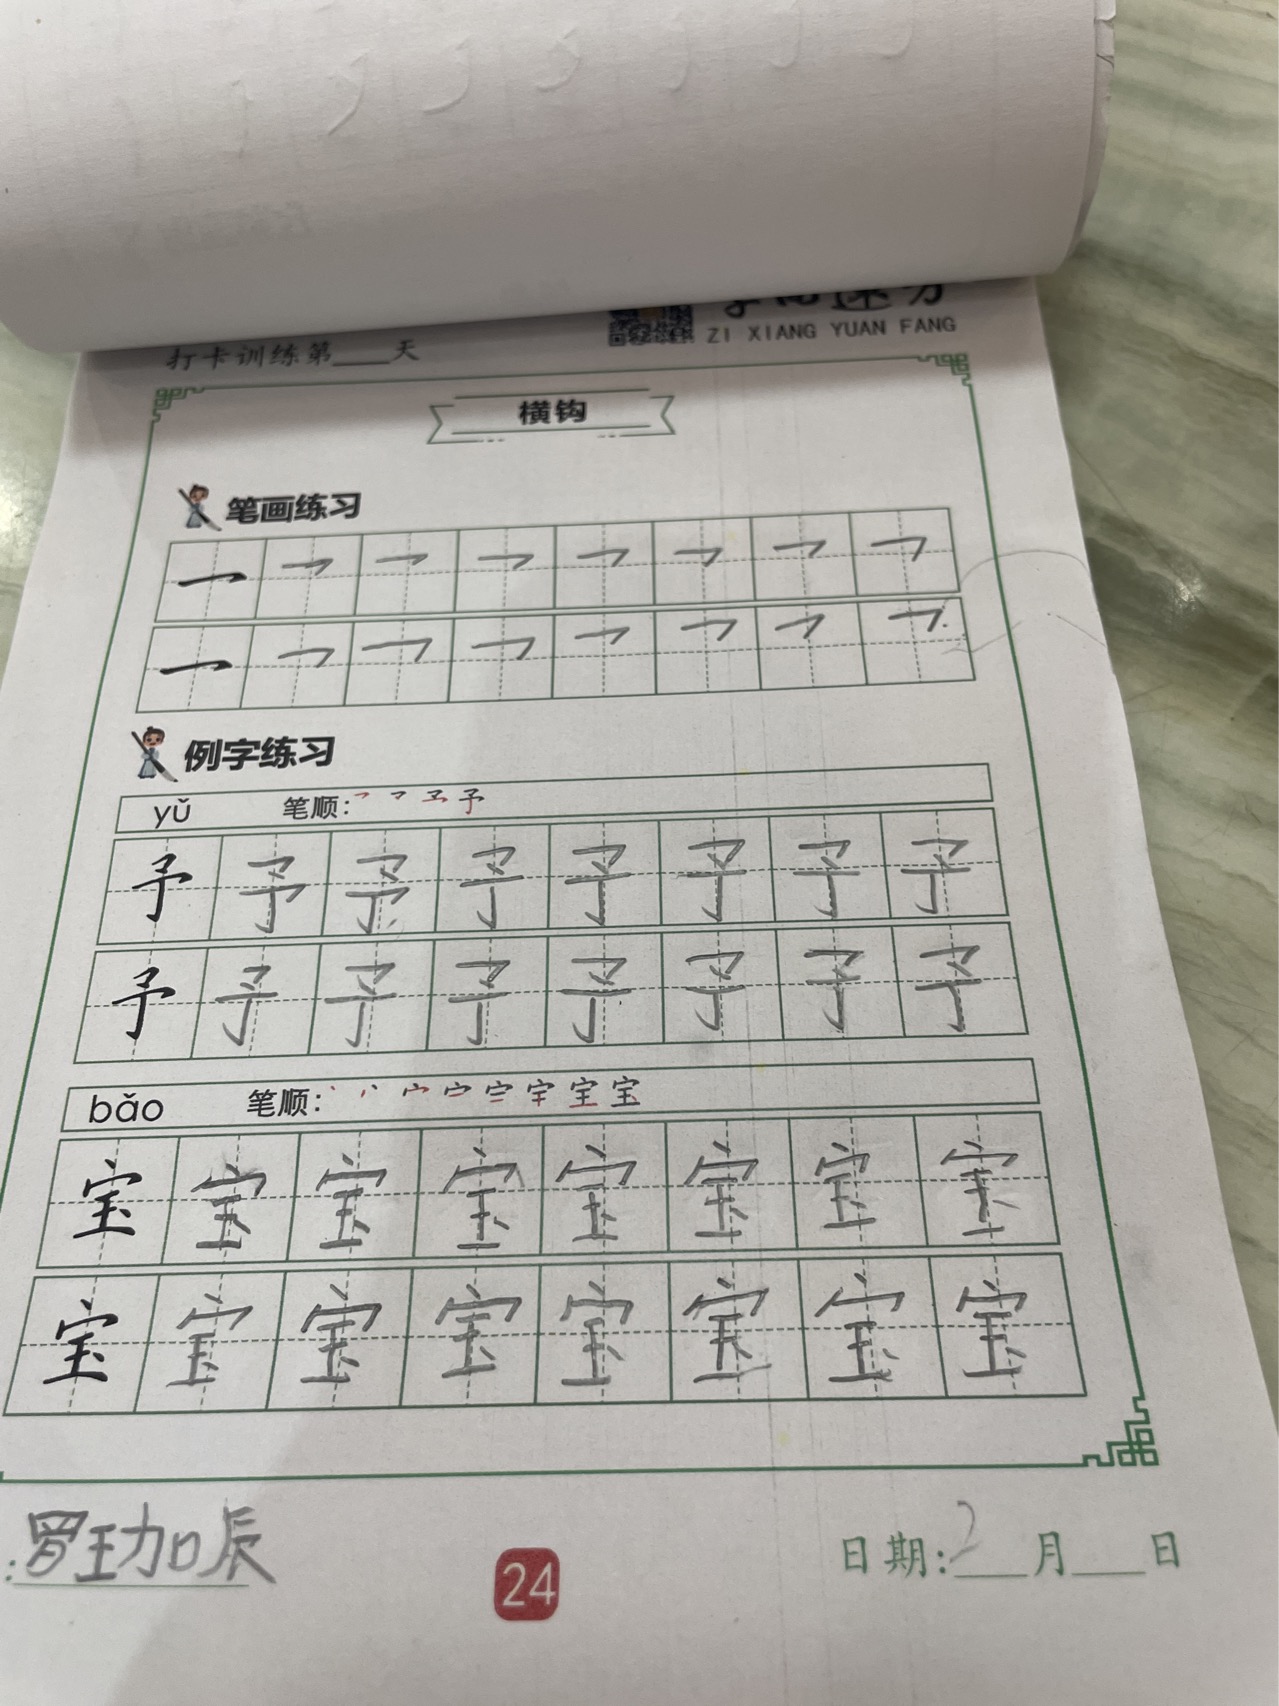 ZI XIANG YUAN FANG
打卡训练第____天
横钩
笔画练习
例字练习
yǔ 笔顺:
予 予 予 予 予 予 予 予
予 予 予 予 予 予 予 予
bǎo 笔顺: 宝
宝 宝 宝 宝 宝 宝 宝 宝
宝 宝 宝 宝 宝 宝 宝 宝
:罗王加辰
24
日期:2月____日